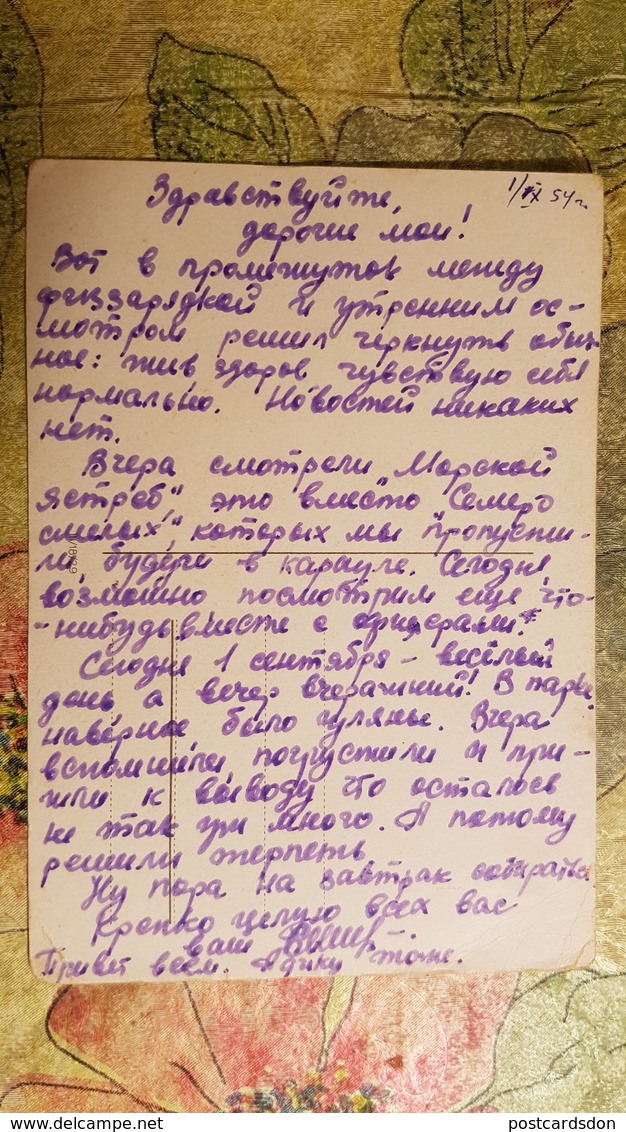 1/IX 54 г.
Здравствуйте,
дорогие мои!
Вот в промежуток между
физзарядкой и утренним ос-
мотром решил черкнуть обыч
ное: жив здоров чувствую себя
нормально. Новостей никаких
нет.
Вчера смотрели „Морской
ястреб", это вместо „Семеро
смелых", которых мы пропусти-
ли, будучи в карауле. Сегодня
возможно посмотрим еще что-
-нибудь вместе с офицерами.
Сегодня 1 сентября - весёлый
день а вечер вчерашний! В парке
наверное было гулянье. Вчера
вспомнили, погрустили и при-
шли к выводу что осталось
не так уж много. А потому
решили терпеть
Ну пора на завтрак собраться
Крепко целую всех вас
ваш
Привет всем. Адику тоже.
postcardsdon